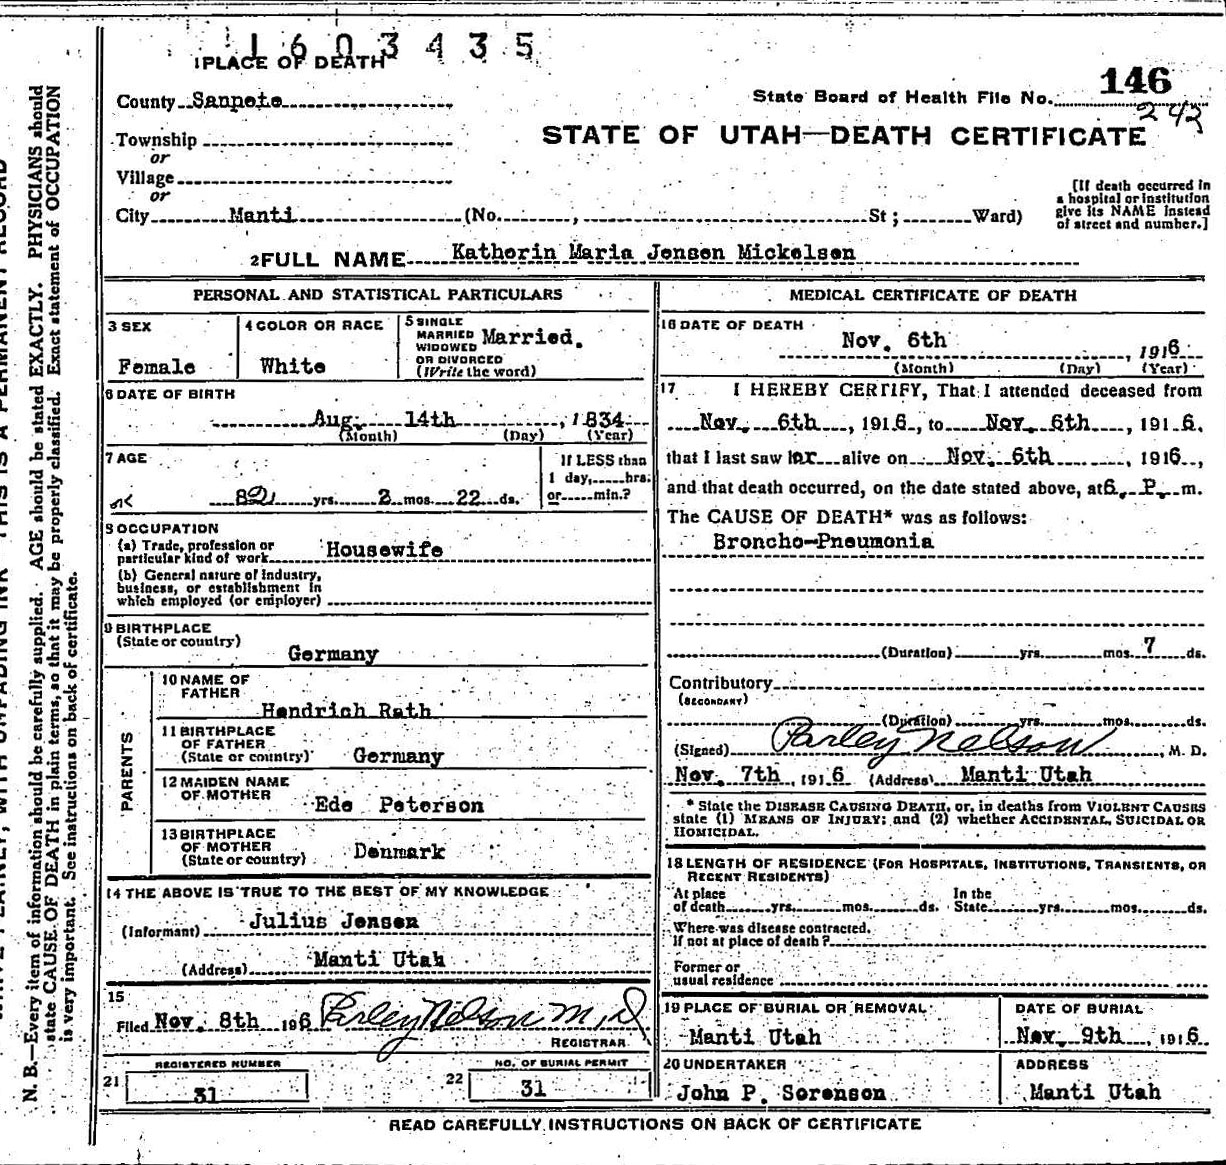 1603435
1 PLACE OF DEATH
County Sanpete
State Board of Health File No. 146
242
Township
STATE OF UTAH—DEATH CERTIFICATE
or
Village
or
City Manti (No. , St ; Ward)
[If death occurred in
a hospital or institution
give its NAME instead
of street and number.]
2 FULL NAME Katherin Maria Jensen Mickelsen
PERSONAL AND STATISTICAL PARTICULARS
3 SEX
Female
4 COLOR OR RACE
White
5 SINGLE
MARRIED
WIDOWED
OR DIVORCED
(Write the word)
Married.
6 DATE OF BIRTH
Aug. 14th , 1834
(Month) (Day) (Year)
7 AGE
82 yrs. 2 mos. 22 ds.
If LESS than
1 day, hrs.
or min.?
8 OCCUPATION
(a) Trade, profession or
particular kind of work Housewife
(b) General nature of industry,
business, or establishment in
which employed (or employer)
9 BIRTHPLACE
(State or country)
Germany
PARENTS
10 NAME OF
FATHER
Hendrich Rath
11 BIRTHPLACE
OF FATHER
(State or country) Germany
12 MAIDEN NAME
OF MOTHER Ede Peterson
13 BIRTHPLACE
OF MOTHER
(State or country) Denmark
14 THE ABOVE IS TRUE TO THE BEST OF MY KNOWLEDGE
(Informant) Julius Jensen
(Address) Manti Utah
15
Filed Nov. 8th 1916 Parley Nelson M.D
REGISTRAR
21 REGISTERED NUMBER
31
22 NO. OF BURIAL PERMIT
31
MEDICAL CERTIFICATE OF DEATH
16 DATE OF DEATH
Nov. 6th , 1916
(Month) (Day) (Year)
17 I HEREBY CERTIFY, That I attended deceased from
Nov. 6th , 1916, to Nov. 6th , 1916,
that I last saw her alive on Nov. 6th , 1916,
and that death occurred, on the date stated above, at 6. P. m.
The CAUSE OF DEATH* was as follows:
Broncho-Pneumonia
(Duration) yrs. mos. 7 ds.
Contributory
(SECONDARY)
(Duration) yrs. mos. ds.
(Signed) Parley Nelson , M. D.
Nov. 7th , 1916 (Address) Manti Utah
* State the DISEASE CAUSING DEATH, or, in deaths from VIOLENT CAUSES
state (1) MEANS OF INJURY; and (2) whether ACCIDENTAL, SUICIDAL OR
HOMICIDAL.
18 LENGTH OF RESIDENCE (FOR HOSPITALS, INSTITUTIONS, TRANSIENTS, OR
RECENT RESIDENTS)
At place
of death yrs. mos. ds.
In the
State yrs. mos. ds.
Where was disease contracted,
If not at place of death?
Former or
usual residence
19 PLACE OF BURIAL OR REMOVAL
Manti Utah
DATE OF BURIAL
Nov. 9th , 1916
20 UNDERTAKER
John P. Sorenson
ADDRESS
Manti Utah
READ CAREFULLY INSTRUCTIONS ON BACK OF CERTIFICATE
N. B.—Every item of information should be carefully supplied. AGE should be stated EXACTLY. PHYSICIANS should
state CAUSE OF DEATH in plain terms, so that it may be properly classified. Exact statement of OCCUPATION
is very important. See instructions on back of certificate.